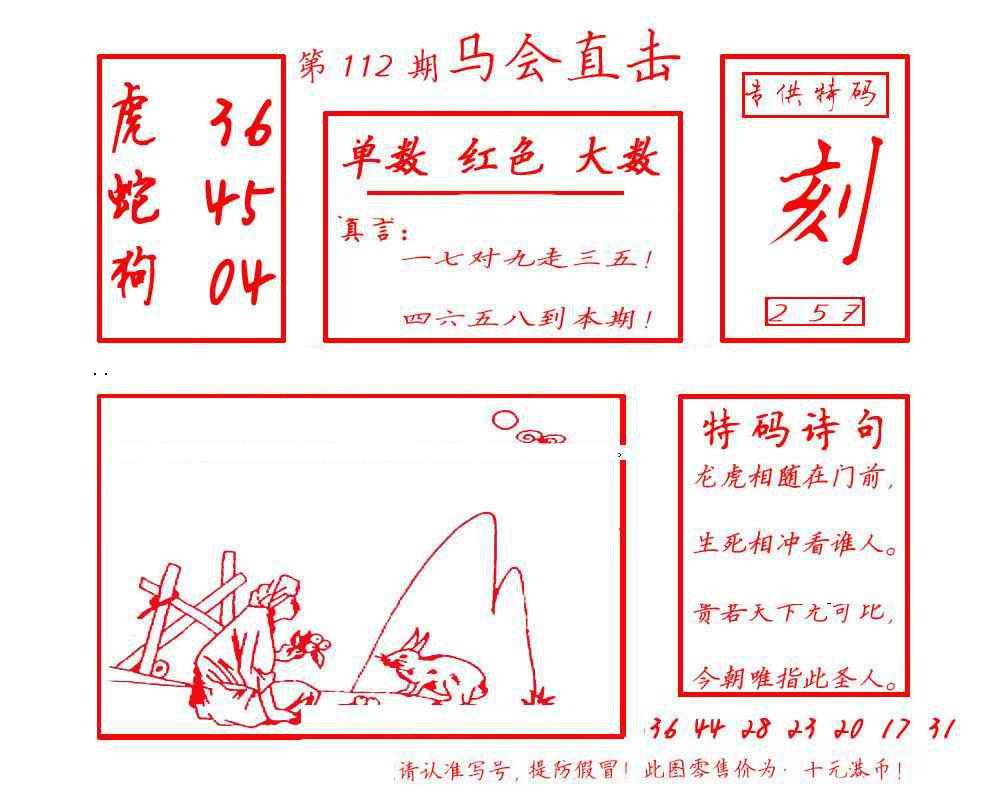 第 112 期 马会直击
虎 36
蛇 45
狗 04
单数 红色 大数
真言：
一七对九走三五！
四六五八到本期！
专供特码
刻
2 5 7
特码诗句
龙虎相随在门前，
生死相冲看谁人。
贵若天下无可比，
今朝唯指此圣人。
36 44 28 23 20 17 31
请认准写号，提防假冒！此图零售价为·十元港币！